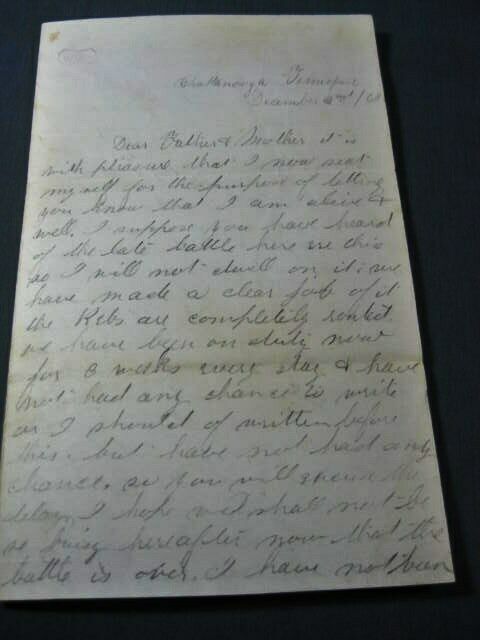 Chattanooga Tennessee
December
Dear Father & Mother it is
with pleasure that I now seat
myself for the purpose of letting
you know that I am alive &
well. I suppose you have heard
of the late battle here
so I will not dwell on it; we
have made a clear job of it
the Rebs are completely routed
we have been on duty now
for 3 weeks every day & have
not had any chance to write
or I should of written before
this. but have not had any
chance. so you will excuse the
delay I hope we shall not be
so busy hereafter now that the
battle is over. I have not been